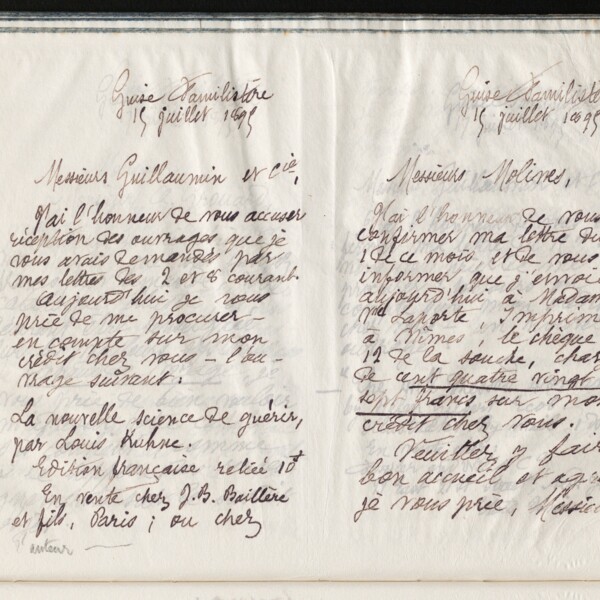 Guise Familistère
15 juillet 1895
Messieurs Guillaumin et Cie,
J'ai l'honneur de vous accuser
réception des ouvrages que je
vous avais demandés par
mes lettres des 2 et 8 courant.
Aujourd'hui je vous
prie de me procurer -
en compte sur mon
crédit chez vous - l'ou-
vrage suivant :
La nouvelle science de guérir,
par Louis Kuhne.
Edition française reliée 10f
En vente chez J. B. Baillère
et fils, Paris ; ou chez
l'auteur —
Guise Familistè
15 juillet 189
Messieurs Molines,
J'ai l'honneur de vous
confirmer ma lettre du
1 de ce mois, et de vous
informer que j'envoie
aujourd'hui à Madam
Laporte, Imprim
à Nîmes, le chèque
12 de la souche, char
de cent quatre vingt
sept francs sur mon
crédit chez vous.
Veuillez y fair
bon accueil et agr
je vous prie, Messie